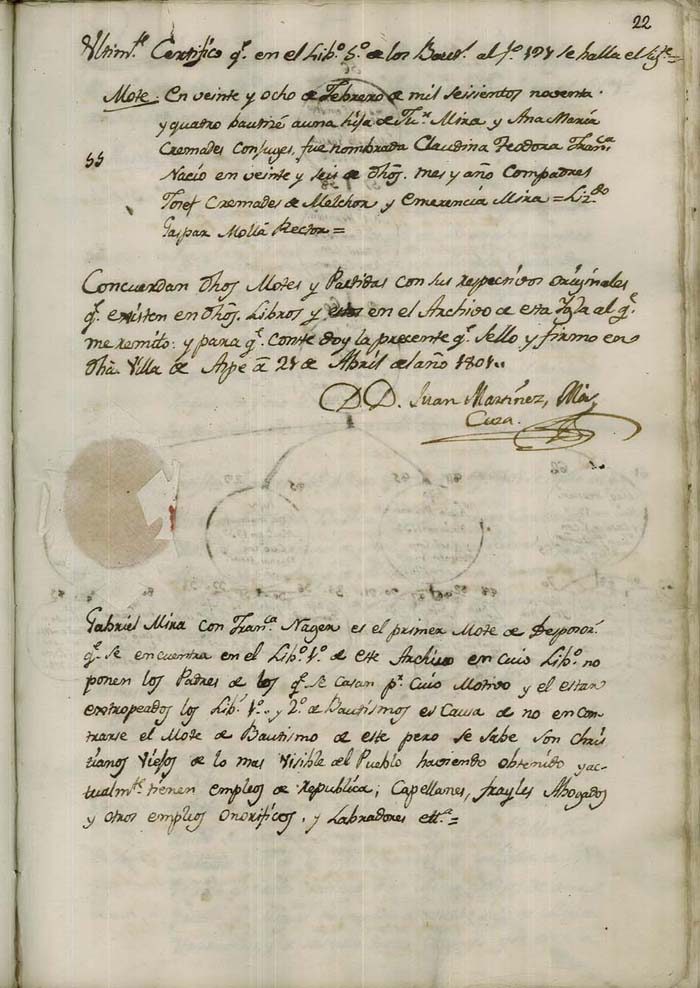 22
Ultim.te Certifico q.e en el Lib.o 5.o de los Baut.s al f.o 121 se halla el sig.te=
Mote. En veinte y ocho de Febrero de mil seisientos noventa
y quatro bautisé a una hija de Fr.co Mira y Ana María
Cremades Conjuges, fue nombrada Claudina Teodora Fran.ca
55
Nacio en veinte y seis de dhos. mes y año Compadres
Josef Cremades de Melchor y Emerencia Mira = Liz.do
Gaspar Mollá Rector=
Concuerdan dhos Motes y Partidas con sus respectivos originales
q.e existen en dhos. Libros y estos en el Archivo de esta Ygla al q.e
me remito: y para q.e conste doy la precente q.e sello y firmo en
dha. Villa de Aspe a 21 de Abril del año 1801..
D.D. Juan Martinez,
Cura.
Gabriel Mira con Fran.ca Nager es el primer Mote de Desposor.s
q.e se encuentra en el Lib.o 1.o de este Archivo en cuio Lib.o no
ponen los Padres de los q.e se Casan p.r Cuio Motivo y el estar
extropeados los Lib.s 1.o y 2.o de Bautismos es Causa de no encon
trarse el Mote de Bautismo de este pero se sabe son Chris
tianos Viejos de lo mas Visible del Pueblo haviendo obtenido y ac-
tualm.te tienen empleos de republica; Capellanes, frayles Abogados
y otros empleos Onorificos, y Labradores ett.a=